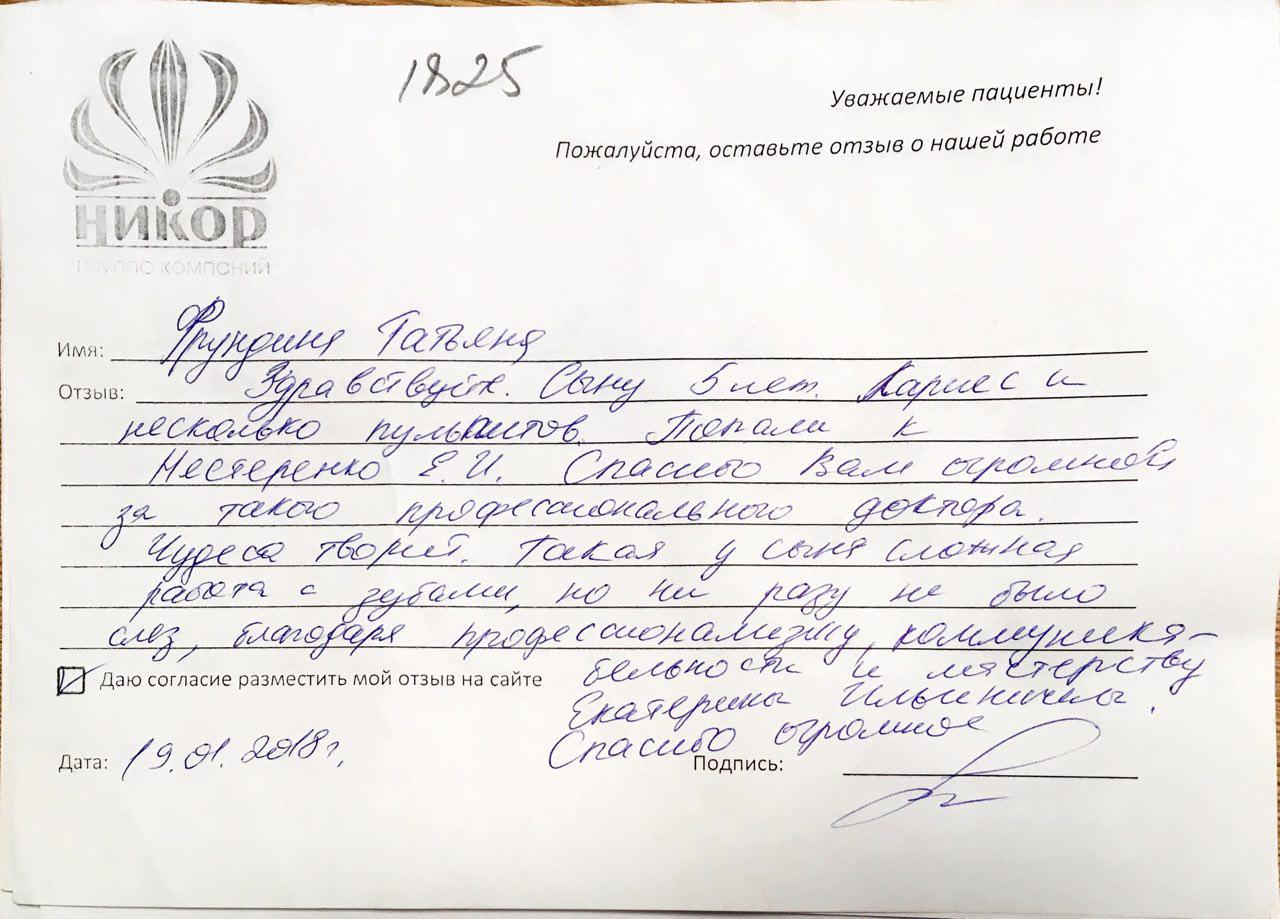 1825
Уважаемые пациенты!
Пожалуйста, оставьте отзыв о нашей работе
НИКОР
группа компаний
Имя: Фрундина Татьяна
Отзыв: Здравствуйте. Сыну 5 лет. Кариес и
несколько пульпитов. Попали к
Нестеренко Е.И. Спасибо Вам огромное
за такого профессионального доктора.
Чудеса творит. Такая у сына сложная
работа с зубами, но ни разу не было
слез, благодаря профессионализму, коммуника-
бельности и мастерству
Екатерины Ильиничны.
Спасибо огромное
Даю согласие разместить мой отзыв на сайте
Дата: 19.01.2018г.
Подпись: